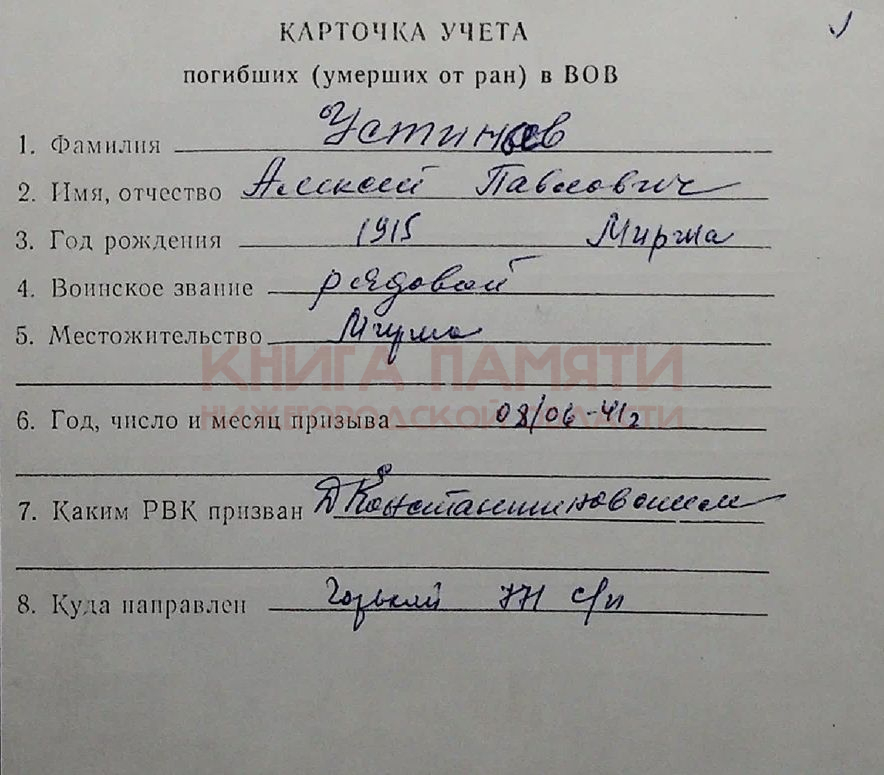 КАРТОЧКА УЧЕТА
погибших (умерших от ран) в ВОВ
1. Фамилия Устинов
2. Имя, отчество Алексей Павлович
3. Год рождения 1915
4. Воинское звание рядовой
5. Местожительство
КНИГА ПАМЯТИ
НИЖЕГОРОДСКОЙ ОБЛАСТИ
6. Год, число и месяц призыва 08/06-41г
7. Каким РВК призван Д Константиновским
8. Куда направлен Горький с/п